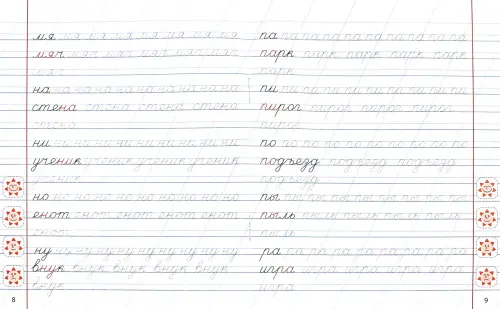 мя мя мя мя мя мя мя мя мя
мяч мяч мяч мяч мяч мяч
мяч
на на на на на на на на на на
стена стена стена стена
стена
ни ни ни ни ни ни ни ни ни
ученик ученик ученик ученик
ученик
но но но но но но но но но
енот енот енот енот енот
енот
ну ну ну ну ну ну ну ну ну
внук внук внук внук внук
внук
8
па па па па па па па па па па
парк парк парк парк парк
парк
пи пи пи пи пи пи пи пи пи
пирог пирог пирог пирог
пирог
по по по по по по по по по по
подъезд подъезд подъезд
подъезд
пы пы пы пы пы пы пы пы
пыль пыль пыль пыль пыль
пыль
ра ра ра ра ра ра ра ра ра ра
игра игра игра игра игра
игра
9